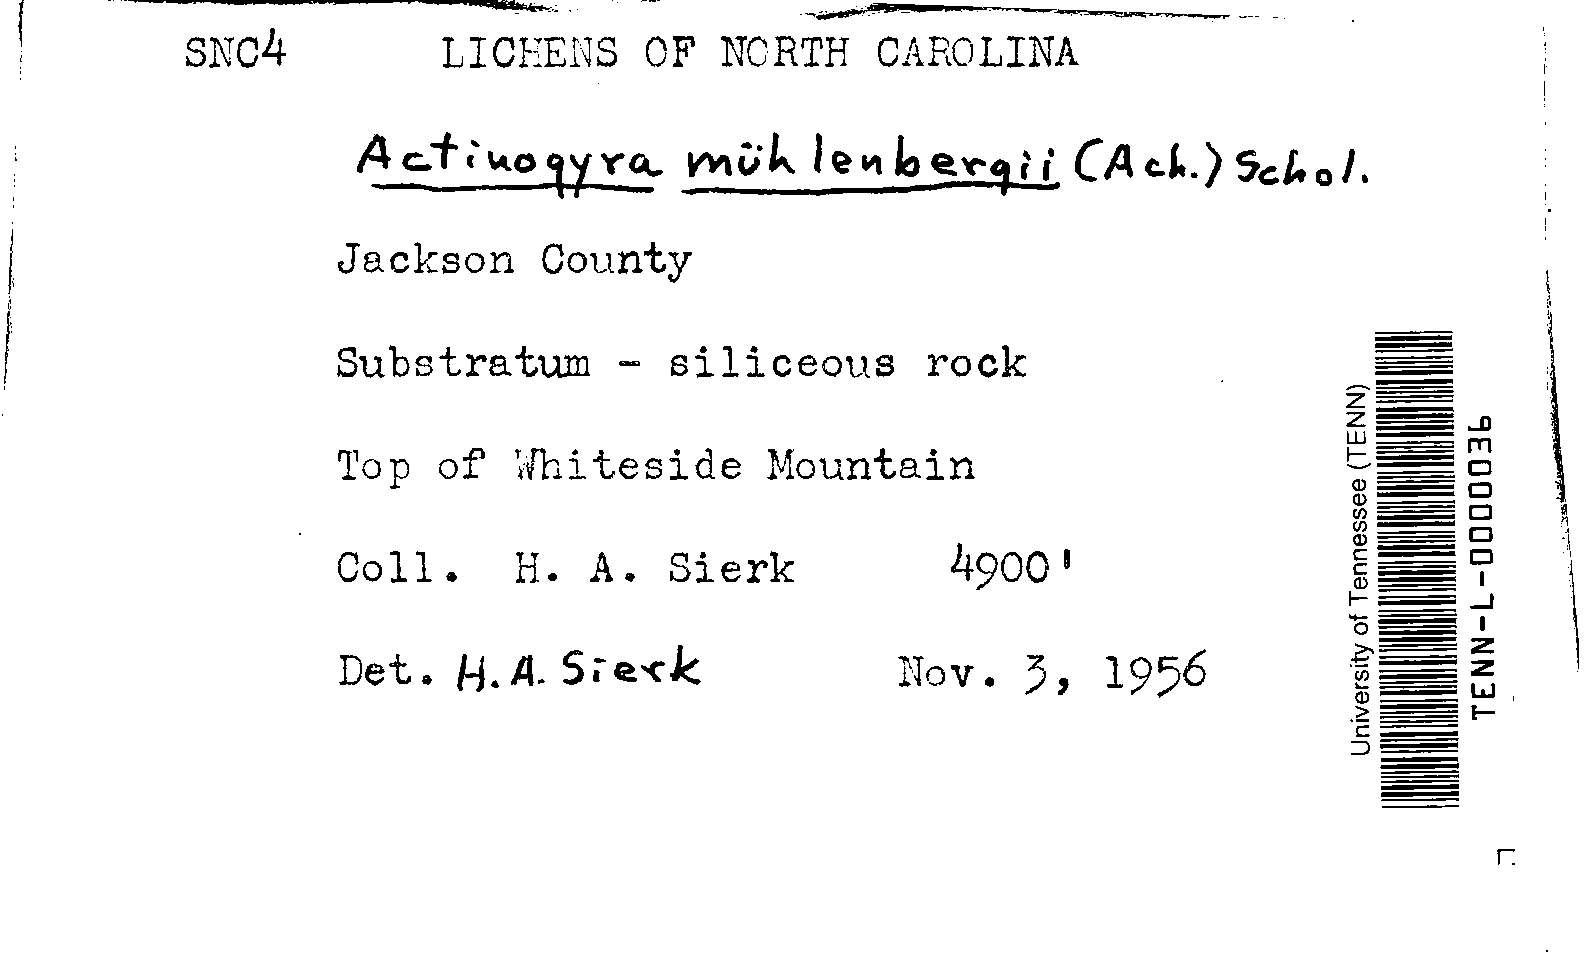 SNC4 LICHENS OF NORTH CAROLINA
Actinogyra mühlenbergii (Ach.) Schol.
Jackson County
Substratum - siliceous rock
Top of Whiteside Mountain
Coll. H. A. Sierk 4900'
Det. H.A. Sierk Nov. 3, 1956
University of Tennessee (TENN)
TENN-L-0000036